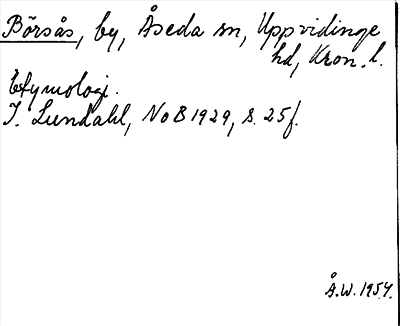 Börsås, by, Åseda sn, Uppvidinge
hd, Kron. l.
Etymologi.
I. Lundahl, NoB 1929, s. 25 f.
Å.W. 1954.